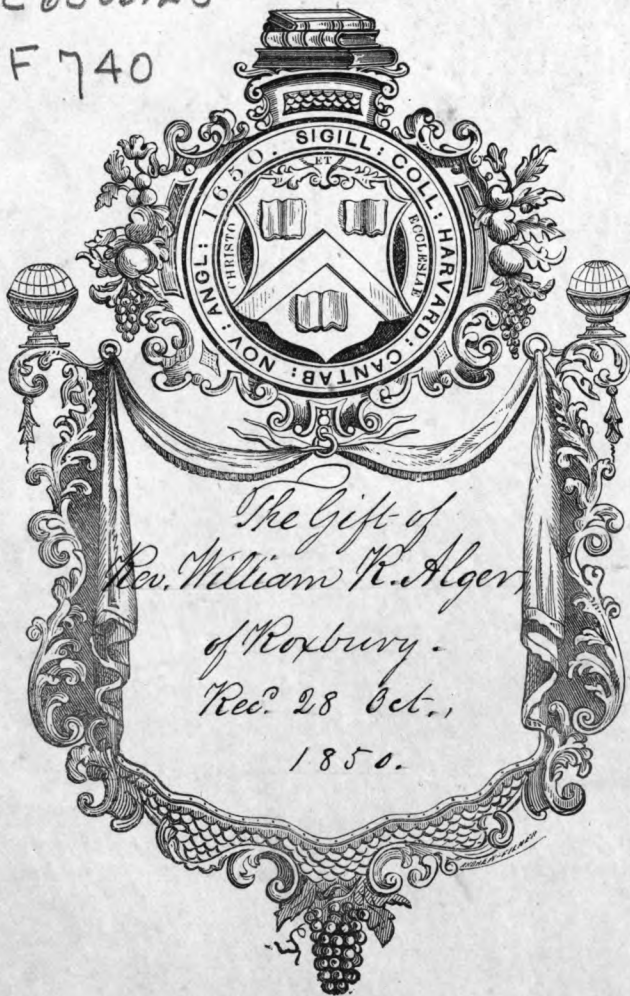 F 740
SIGILL: COLL: HARVARD: CANTAB: NOV: ANGL: 1650.
CHRISTO ET ECCLESIAE
The Gift of
Rev. William R. Alger,
of Roxbury.
Rec.d 28 Oct.,
1850.